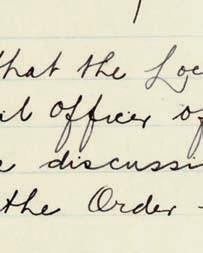 that the Loc
il Officer of
e discussi
the Order -